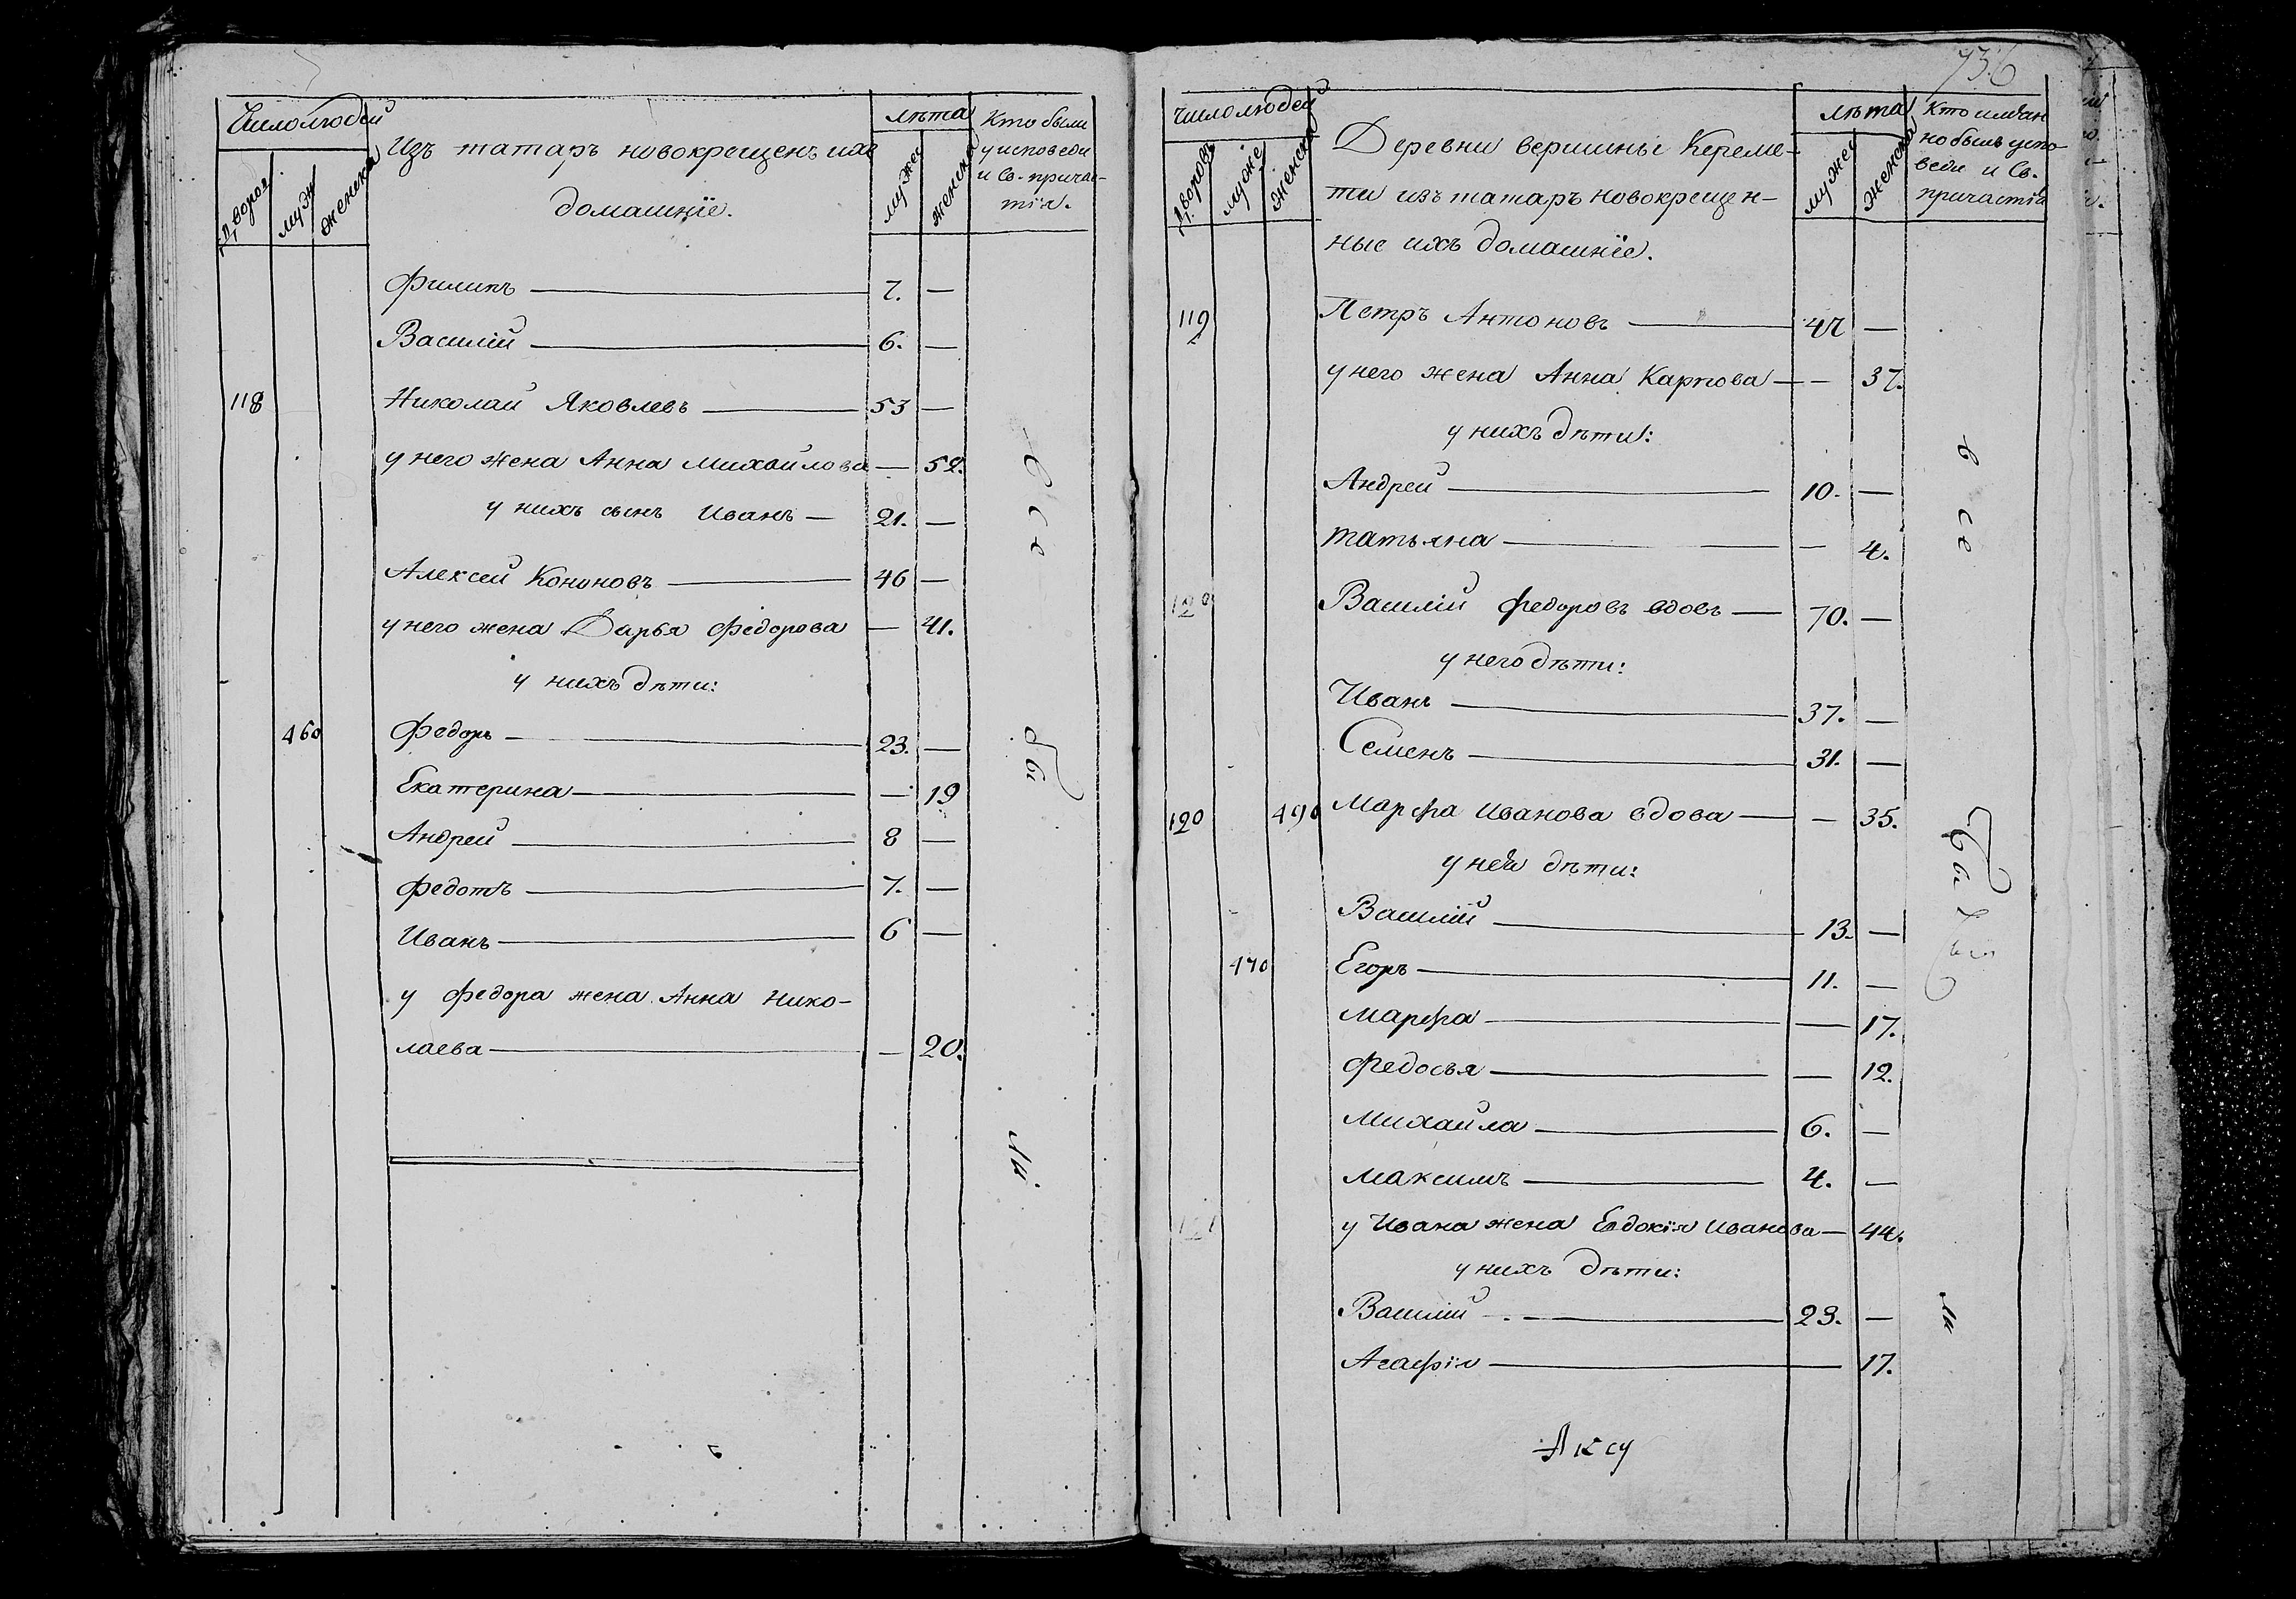 Число людей
Дворов.
муж
женска
Изъ татаръ новокрещенъ ихъ
домашніе.
лѣта
мужес
женска
Кто были
у исповеди
и Св. причас-
тія.
Филипъ — 7. —
Василій — 6. —
118 Николай Яковлевъ — 53 —
у него жена Анна Михайлова — 52.
у нихъ сынъ Иванъ — 21. —
Алексей Кононовъ — 46 —
у него жена Дарья Федорова — 41.
у нихъ дѣти:
460 Федоръ — 23. —
Екатерина — — 19
Андрей — 8 —
Федотъ — 7. —
Иванъ — 6 —
у Федора жена Анна Нико-
лаева — — 20.
все
бы
ли.
736
Число людей
Дворовъ
муже
женска
Деревни вершины Кереме-
ти изъ татаръ новокрещен-
ные ихъ домашніе.
лѣта
мужес
женска
Кто имян
но былъ успо
веди и Св.
причастія
119 Петръ Антоновъ — 42 —
у него жена Анна Карпова — — 37.
у нихъ дѣти:
Андрей — 10. —
Татьяна — — 4.
120 Василій Федоровъ вдовъ — 70. —
у него дѣти:
Иванъ — 37. —
Семенъ — 31. —
120 490 Марфа Иванова вдова — — 35.
у ней дѣти:
Василій — 13. —
470 Егоръ — 11. —
Марфа — — 17.
Федосья — — 12.
Михайла — 6. —
Максимъ — 4. —
121 у Ивана жена Евдокія Иванова — 44.
у нихъ дѣти:
Василій — 23. —
Агафія — 17.
все
бы
ли
Аксу